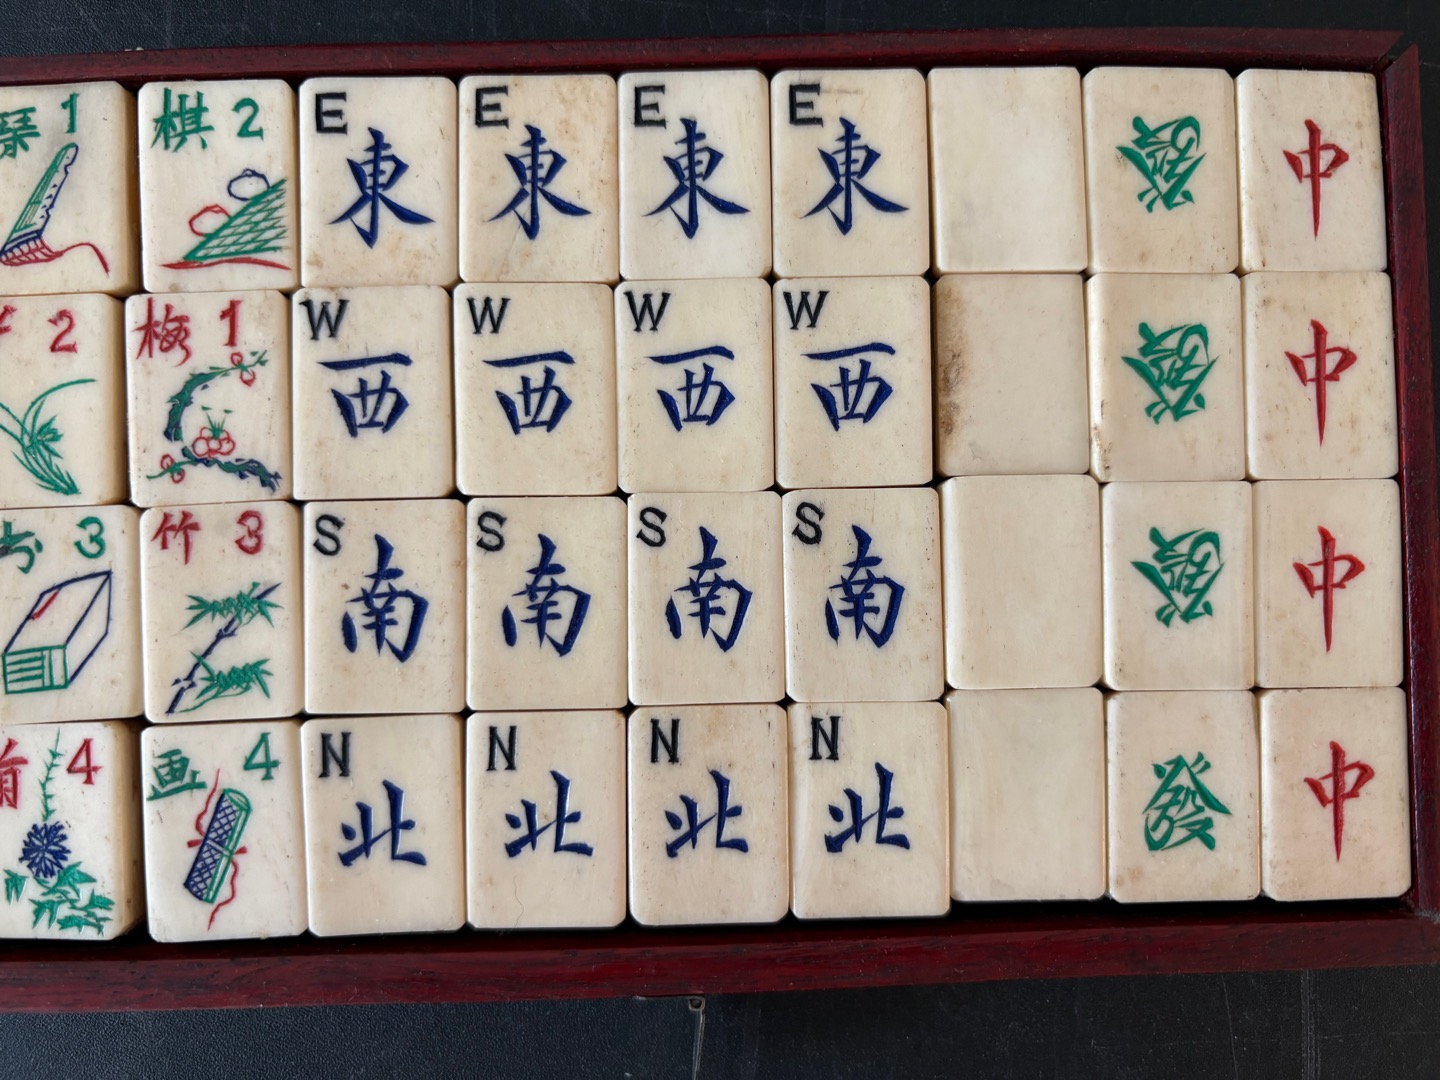 1
棋 2
E
東
E
東
E
東
E
東
發
中
2
梅 1
W
西
W
西
W
西
W
西
發
中
3
竹 3
S
南
S
南
S
南
S
南
發
中
4
画 4
N
北
N
北
N
北
N
北
發
中